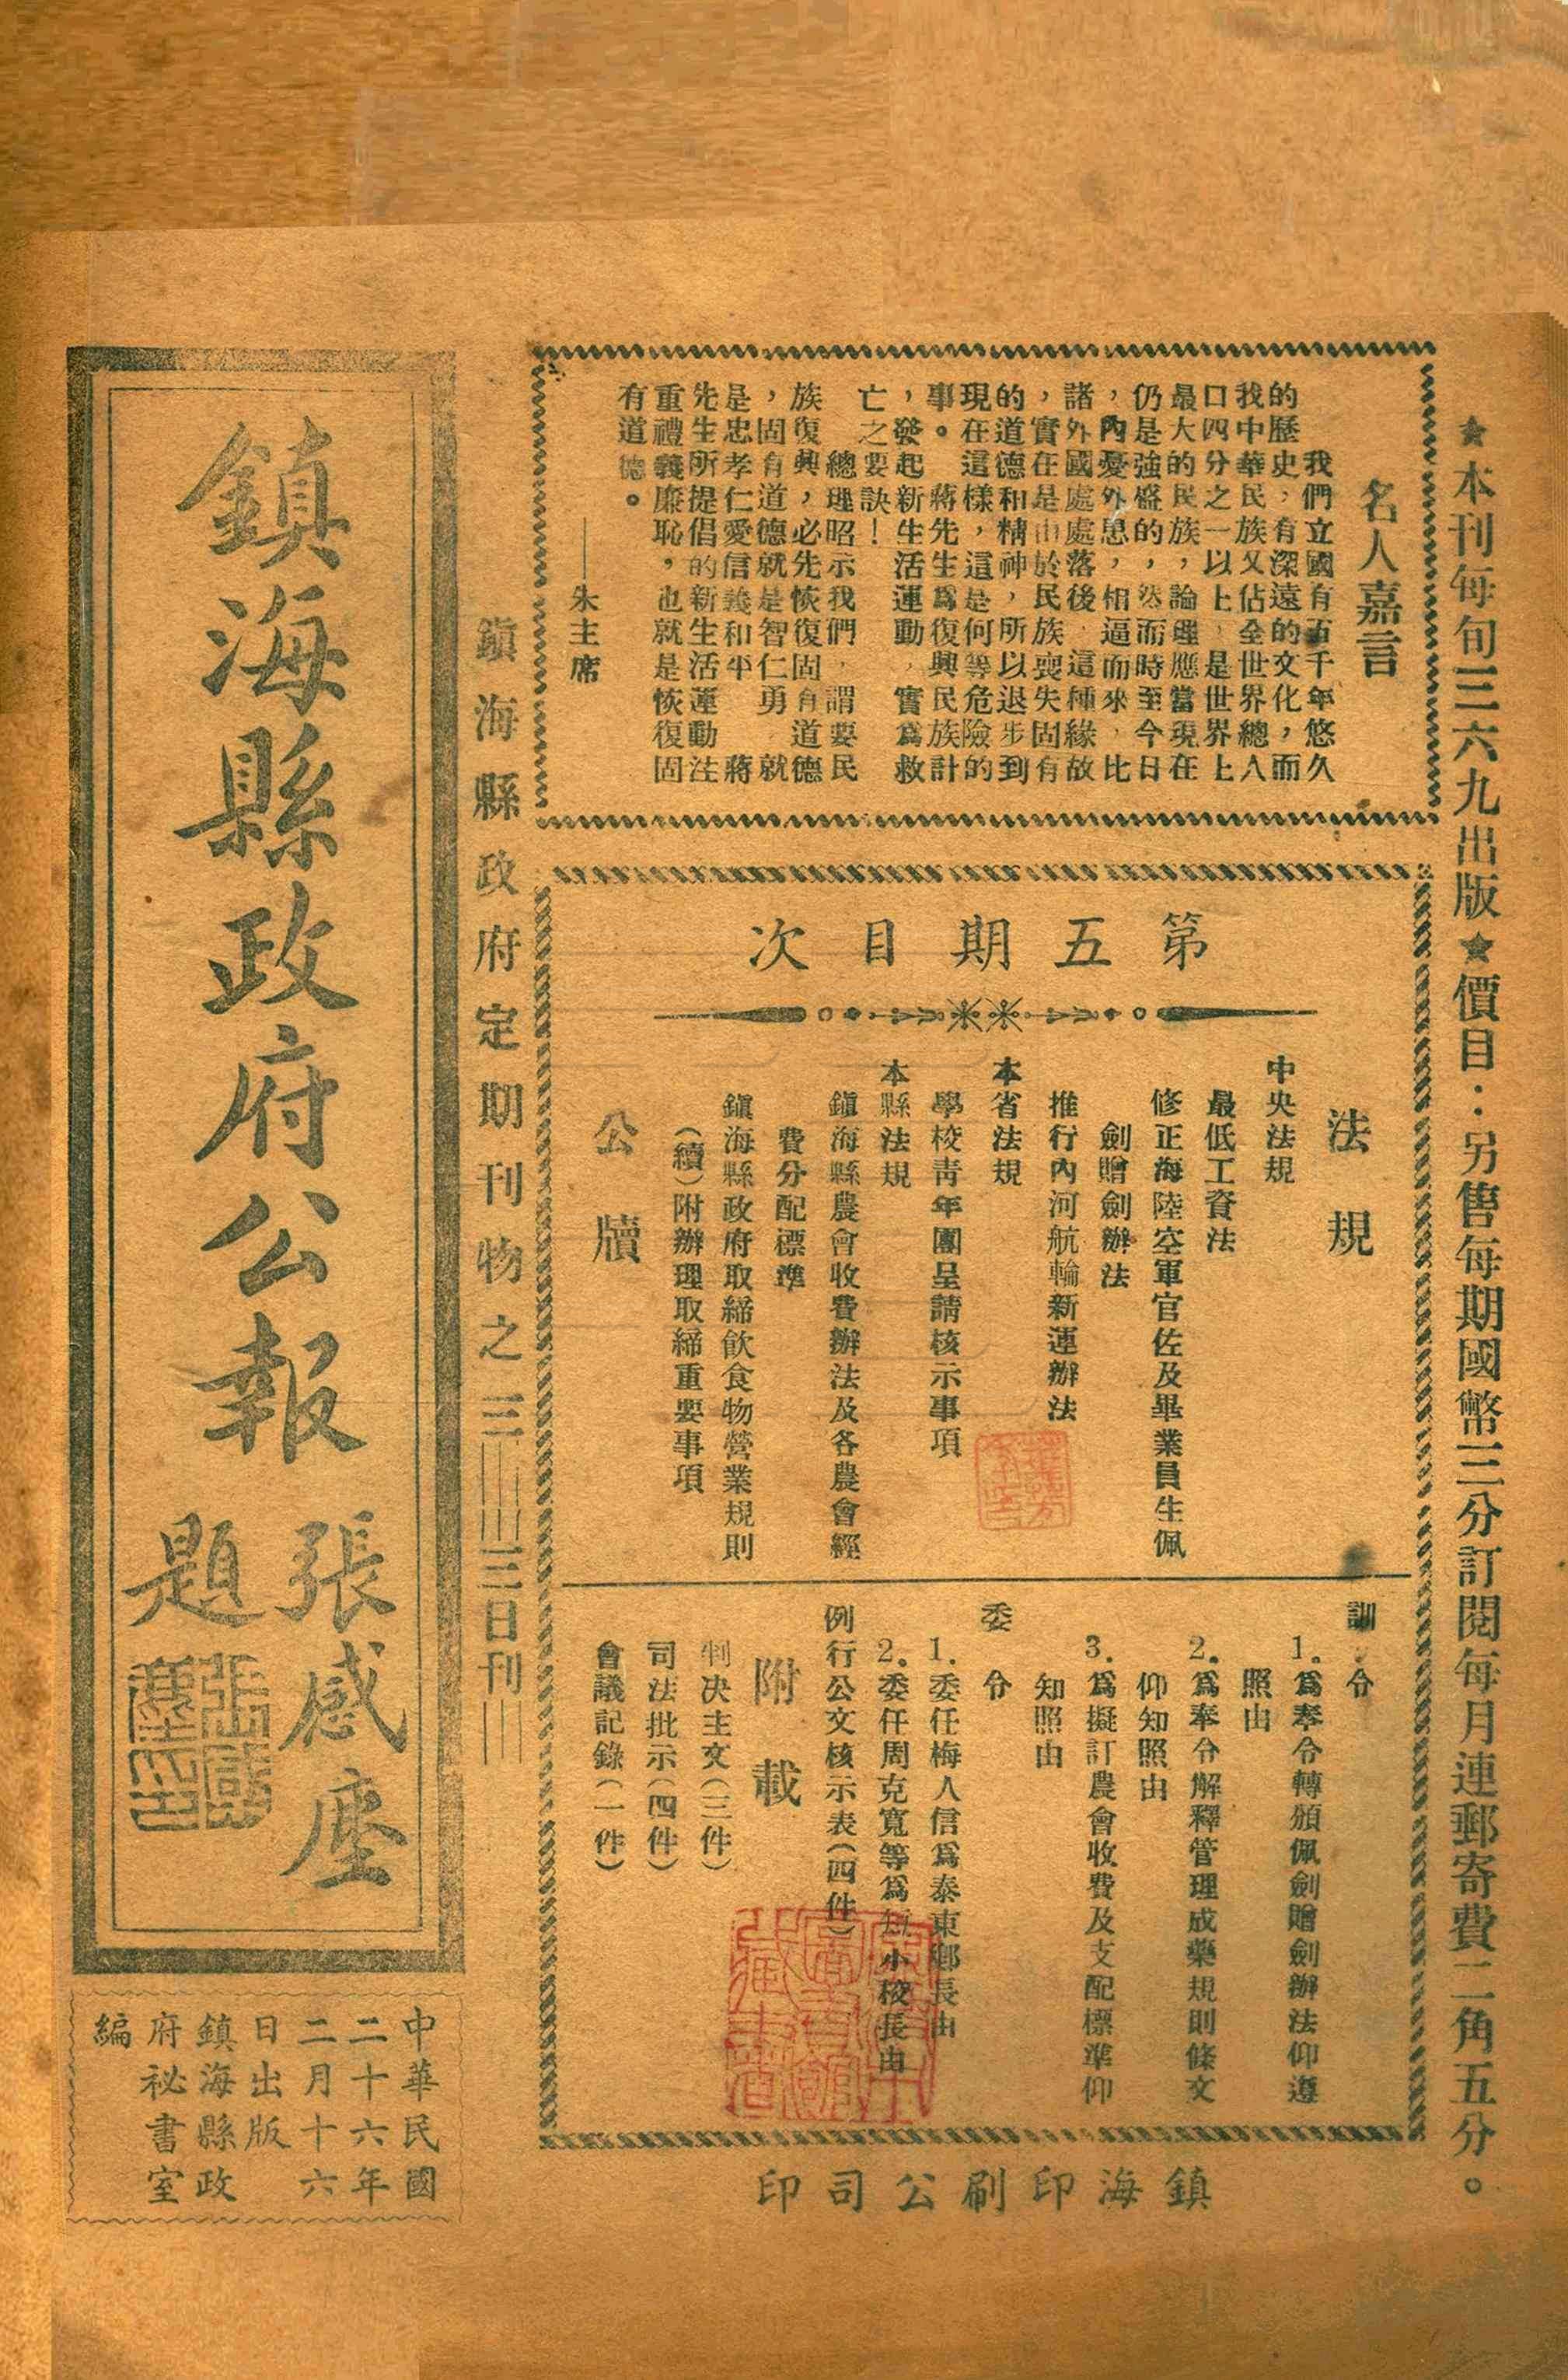 ★本刊每旬三六九出版★價目：另售每期國幣三分訂閱每月連郵寄費二角五分。
名人嘉言
我們立國有五千年悠久
的歷史，有深遠的文化，而
我中華民族又佔全世界總人
口四分之一以上，是世界上
最大的民族，論理應當現在
仍是強盛的，然而時至今日
，內憂外患，相逼而來，比
諸外國處處落後，這種緣故
，實在是由於民族喪失固有
的道德和精神，所以退步到
現在這樣，這是何等危險的
事。蔣先生爲復興民族計
，發起新生活運動，實爲救
亡之要訣！
總理昭示我們，謂要民
族復興，必先恢復固有道德
，固有道德就是智仁勇，就
是忠孝仁愛信義和平，蔣
先生所提倡的新生活運動注
重禮義廉恥，也就是恢復固
有道德。
——朱主席
第五期目次
法規
中央法規
最低工資法
修正海陸空軍官佐及畢業員生佩
劍贈劍辦法
推行內河航輪新運辦法
本省法規
學校青年團呈請核示事項
本縣法規
鎭海縣農會收費辦法及各農會經
費分配標準
鎭海縣政府取締飲食物營業規則
（續）附辦理取締重要事項
公牘
訓令
1.爲奉令轉頒佩劍贈劍辦法仰遵
照由
2.爲奉令解釋管理成藥規則條文
仰知照由
3.爲擬訂農會收費及支配標準仰
知照由
委令
1.委任梅人信爲泰東鄉長由
2.委任周克寬等爲短小校長由
例行公文核示表（四件）
附載
判決主文（三件）
司法批示（四件）
會議記錄（一件）
鎭海印刷公司印
鎭海縣政府定期刊物之三
三日刊
鎭海縣政府公報
張感塵
題
張感塵印
中華民國
二十六年
二月十六
日出版
鎭海縣政
府祕書室
編